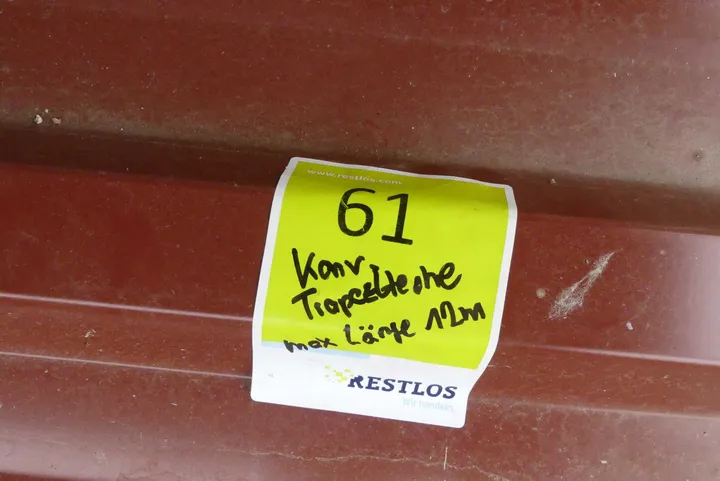 www.restlos.com
61
Konv
Trapezbleche
max Länge 12m
RESTLOS